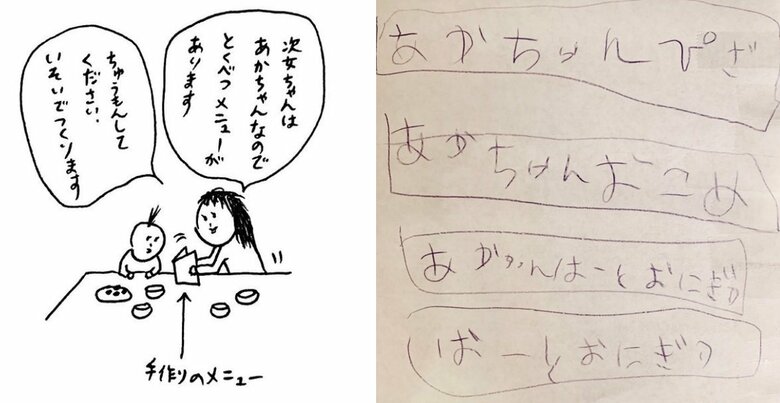 次女ちゃんは
あかちゃんなので
とくべつメニューが
あります
ちゅうもんして
ください、
いそいでつくります
手作りのメニュー
あかちゅんぴざ
あかちゅんおこめ
あかちんはーとおにぎり
はーとおにぎり